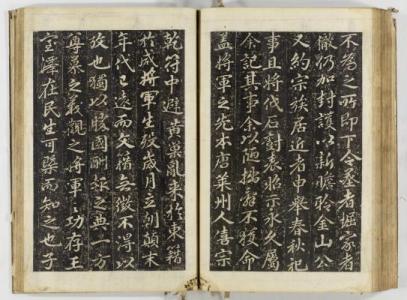 不為之所即丁令墓者掘冢者
徹仍加封護以新瞻聆金山公
又約宗族居近者申舉春秋祀
事且將伐石封表昭示永久屬
余記其事余以陋拙辭不獲命
盖將軍之先本唐萊州人僖宗
乾符中避黄巢亂来於東籍
於咸將軍生歿歲月立朝顛末
年代已遠而文獻無徵不得以
攷也獨以勝國酬報之典一方
尊慕之義觀之將軍之功存王
室澤在民生可槩而知之也子